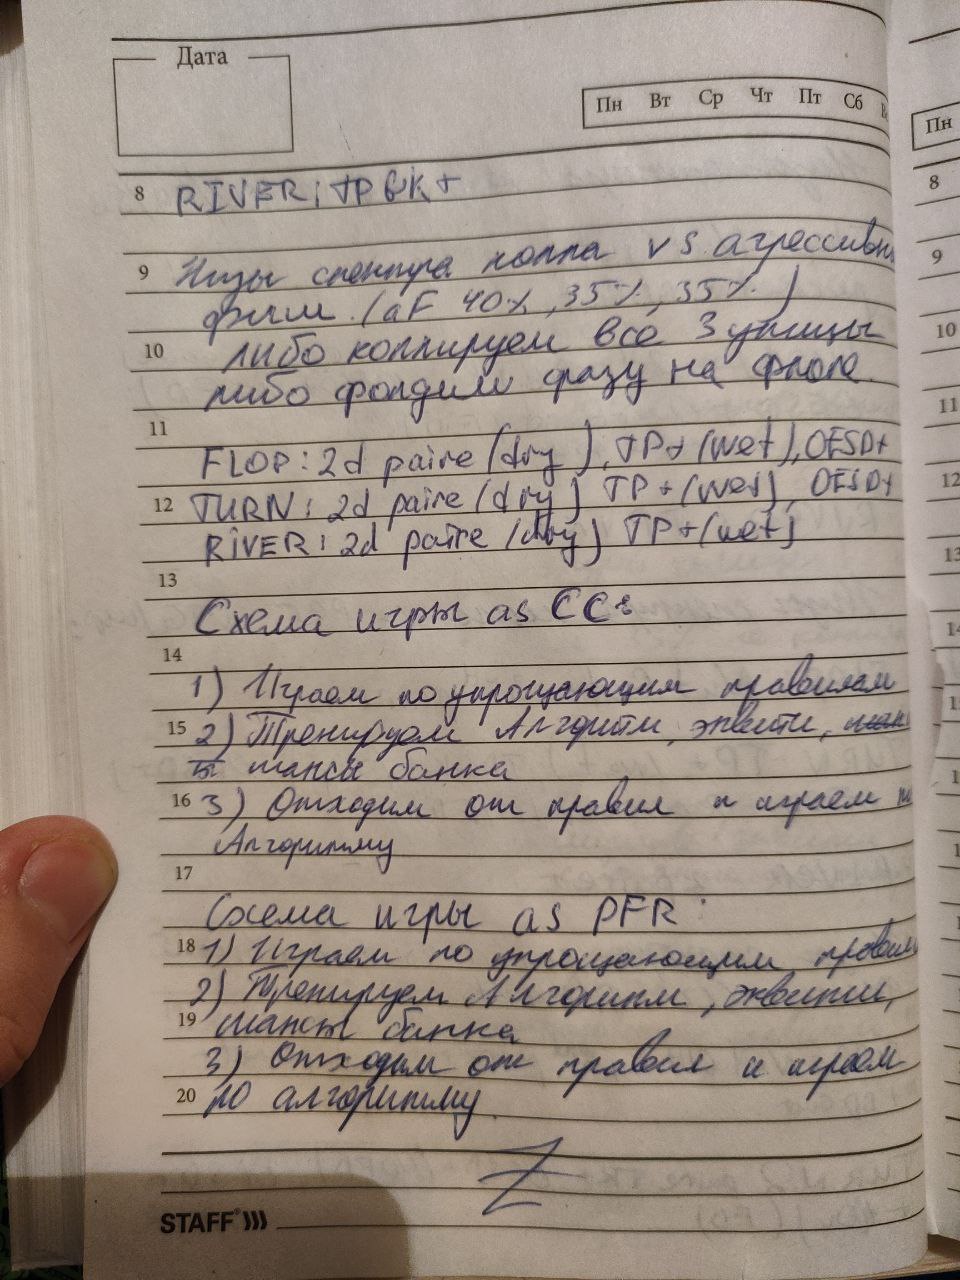 Дата
Пн Вт Ср Чт Пт Сб
Пн
8 RIVER: TPGK+
8
9 Низы спектра колла vs агрессивн
9
фиш. (aF 40%, 35%, 35%)
10 либо коллируем все 3 улицы
10
либо фолдим сразу на флопе.
11
11
FLOP: 2d paire (dry), TP+ (wet), OESD+
12 TURN: 2d paire (dry) TP+(wet), OESD+
12
RIVER: 2d paire (dry) TP+(wet)
13
13
Схема игры as CC:
14
14
1) Играем по упрощающим правилам
15 2) Тренируем Алгоритм, эквити,
шансы банка
16 3) Отходим от правил и играем по
Алгоритму
17
Схема игры as PFR:
18 1) Играем по упрощающим правилам
2) Тренируем Алгоритм, эквити,
19 шансы банка
3) Отходим от правил и играем
20 по алгоритму.
STAFF